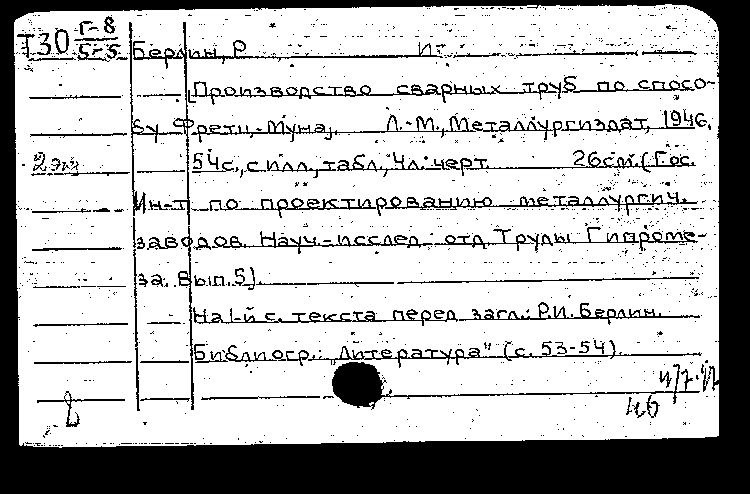 Т30 Г-8
Б-5 Берлин, Р. И.
Производство сварных труб по спосо-
бу Фретц-Мунај. Л.-М., Металлургиздат, 1946.
2 экз 54с., с илл., табл., 4л. черт. 26см. (Гос.
Ин-т по проектированию металлургич.
заводов. Науч-исслед. отд. Труды Гипроме-
за. Вып. 5).
На 1-й с. текста перед загл.: Р.И. Берлин.
Библиогр.: „Литература" (с. 53-54).
46